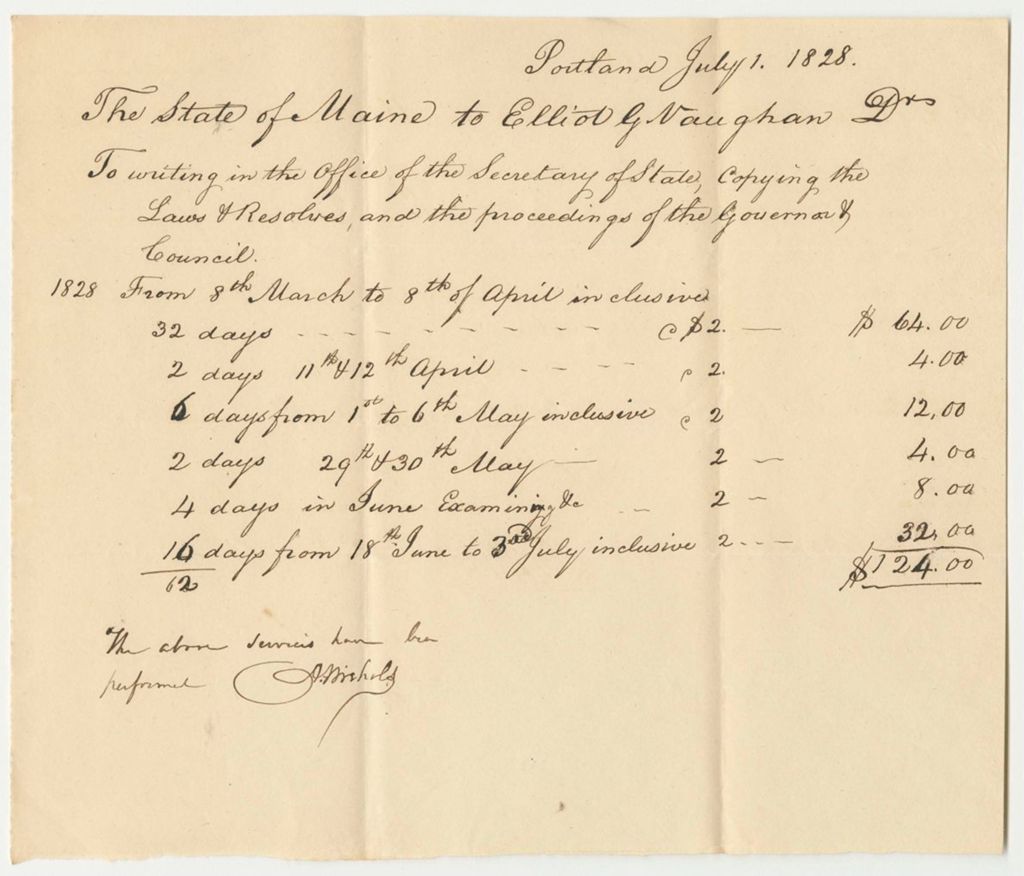 Portland July 1. 1828.
The State of Maine to Elliot G Vaughan Drs
To writing in the Office of the Secretary of State, Copying the
Laws & Resolves, and the proceedings of the Governor &
Council.
1828 From 8th March to 8th of April inclusive
32 days - - - - - - - - @ $2. — $ 64.00
2 days 11th & 12th April - - - - @ 2. 4.00
6 days from 1st to 6th May inclusive @ 2 12,00
2 days 29th & 30th May — 2 — 4.00
4 days in June Examining &c - - 2 — 8.00
16 days from 18th June to 3rd July inclusive 2 - - - 32,00
62 $124.00
The above services have been
performed A. Nichols